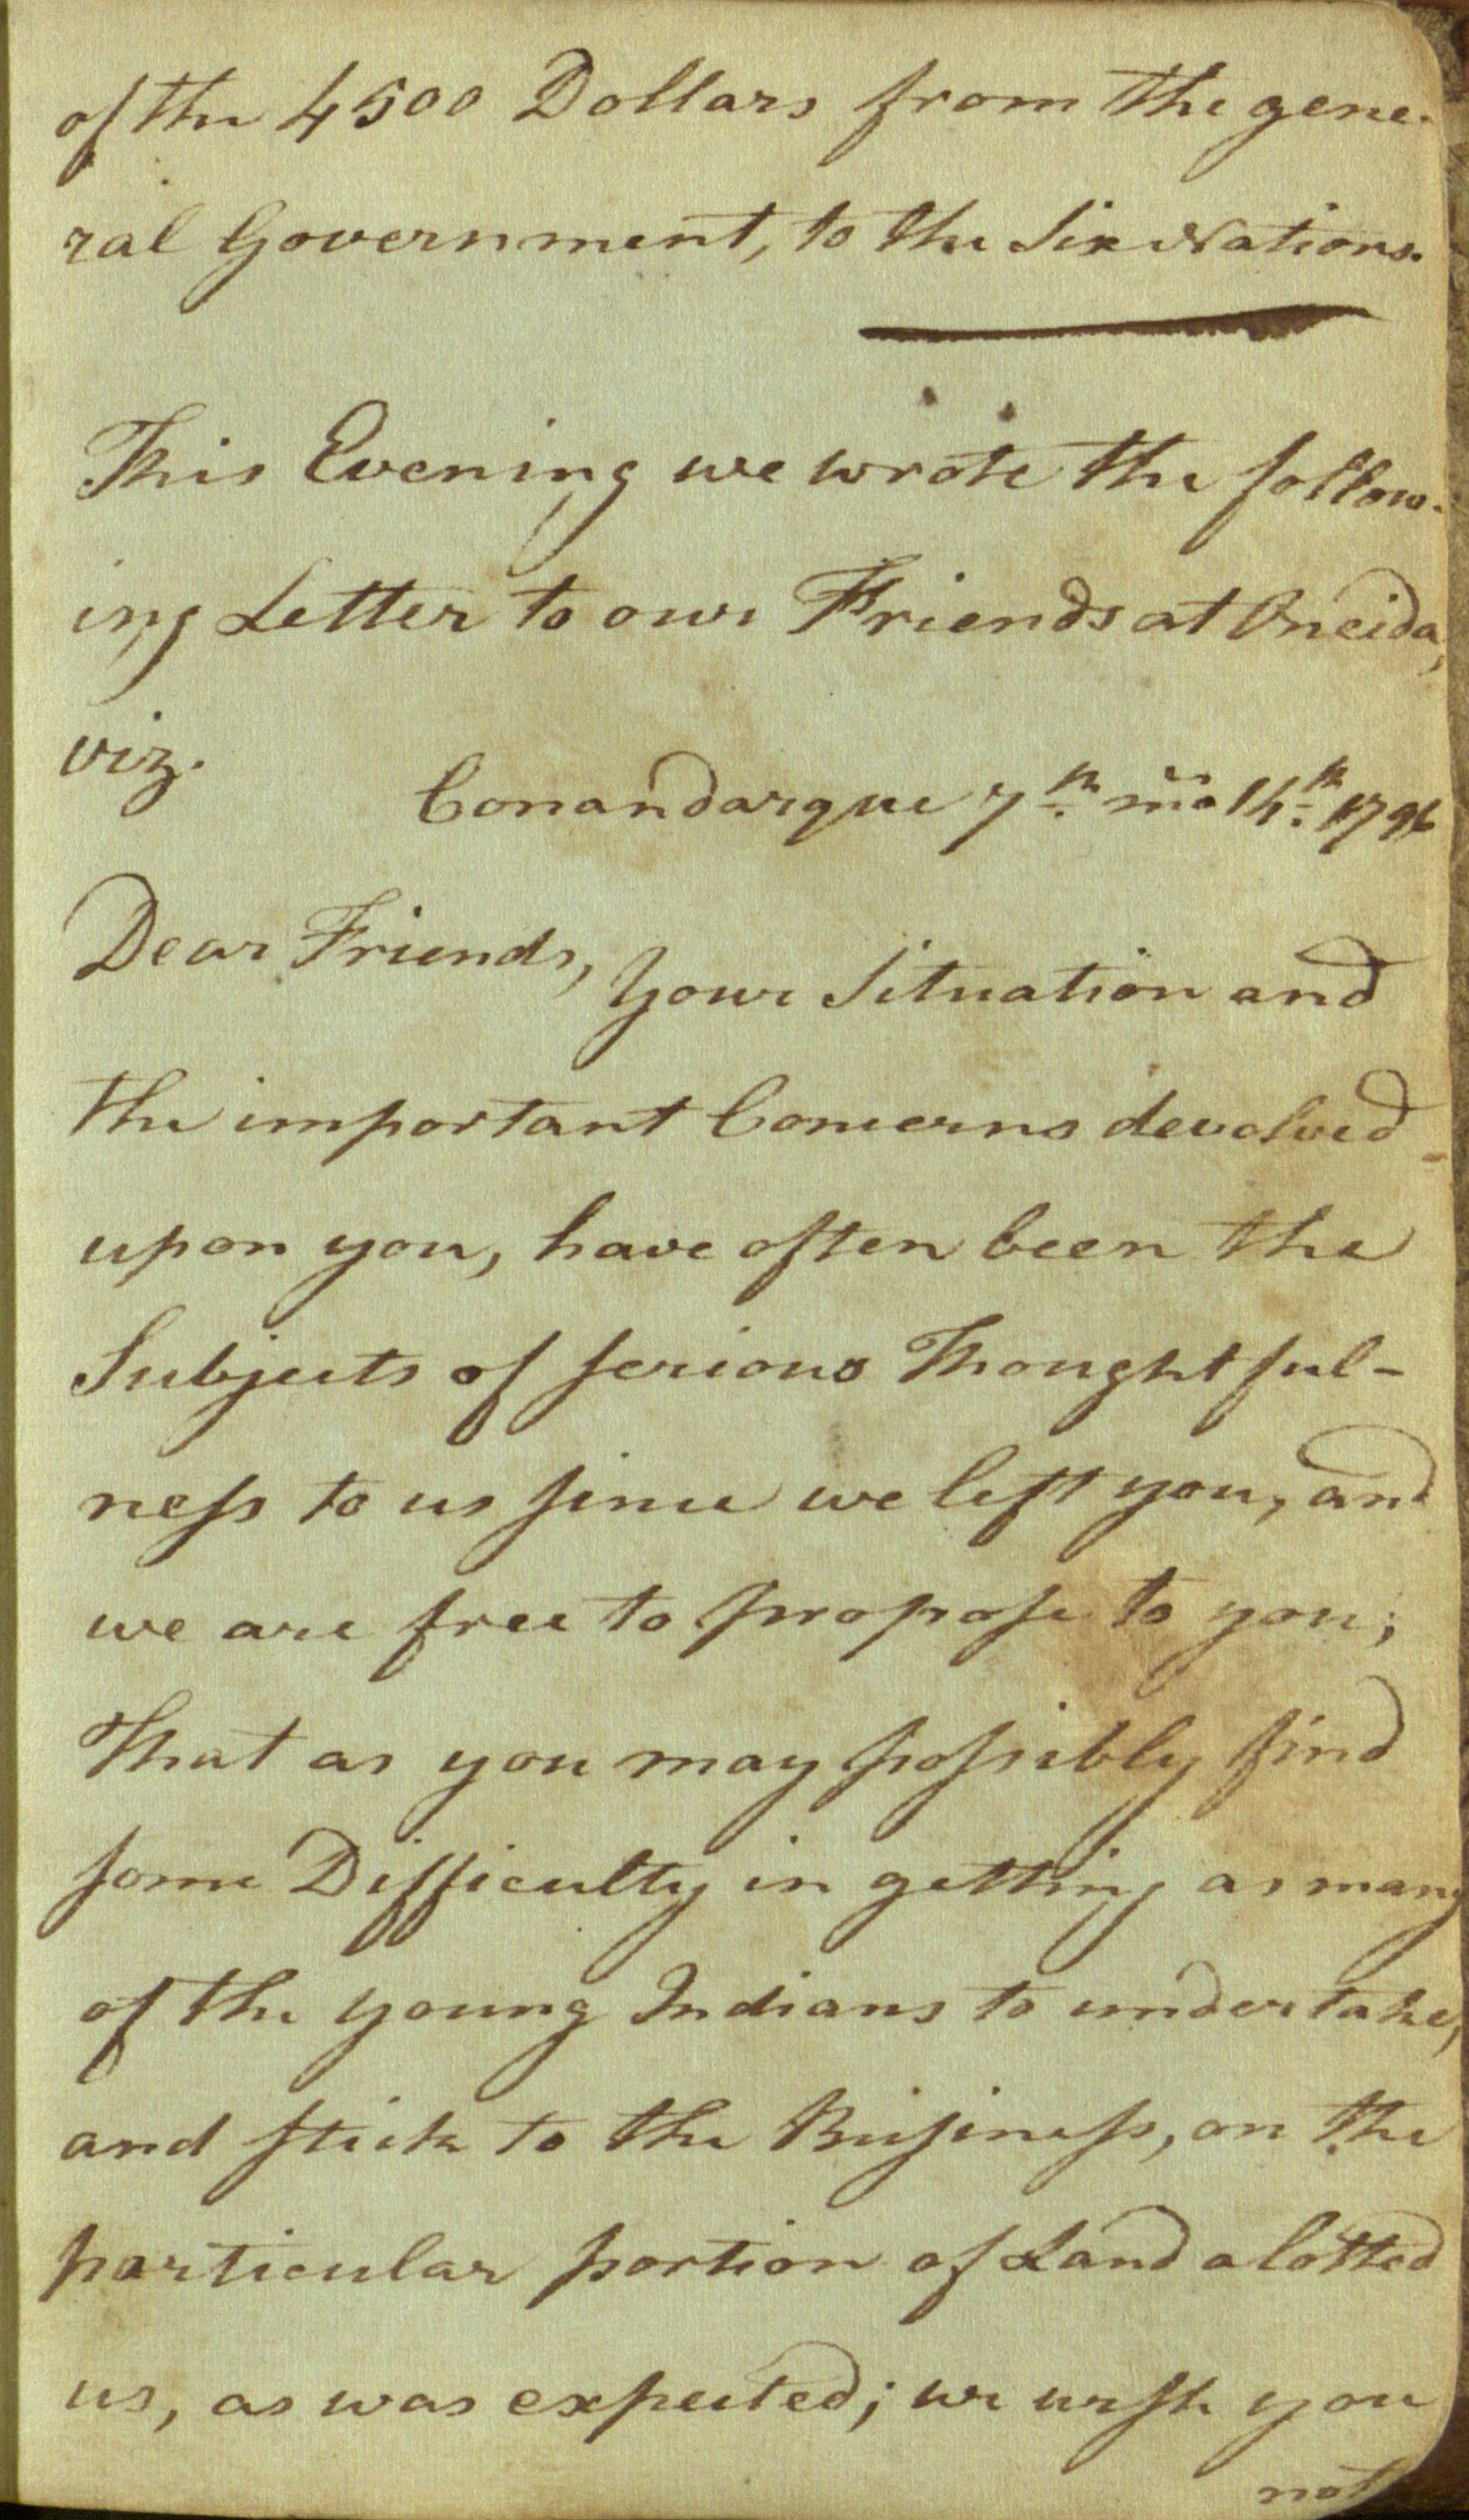 of the 4500 Dollars from the gene-
ral Government, to the Six Nations.
This Evening we wrote the follow-
ing Letter to our Friends at Oneida,
viz.
Conandarque 7th mo 14th 1796
Dear Friends, Your Situation and
the important Concerns devolved
upon you, have often been the
Subjects of serious Thoughtful-
ness to us since we left you, and
we are free to propose to you;
That as you may possibly find
some Difficulty in getting as many
of the young Indians to undertake,
and stick to the Business, on the
particular portion of Land alotted
us, as was expected; we wish you
not